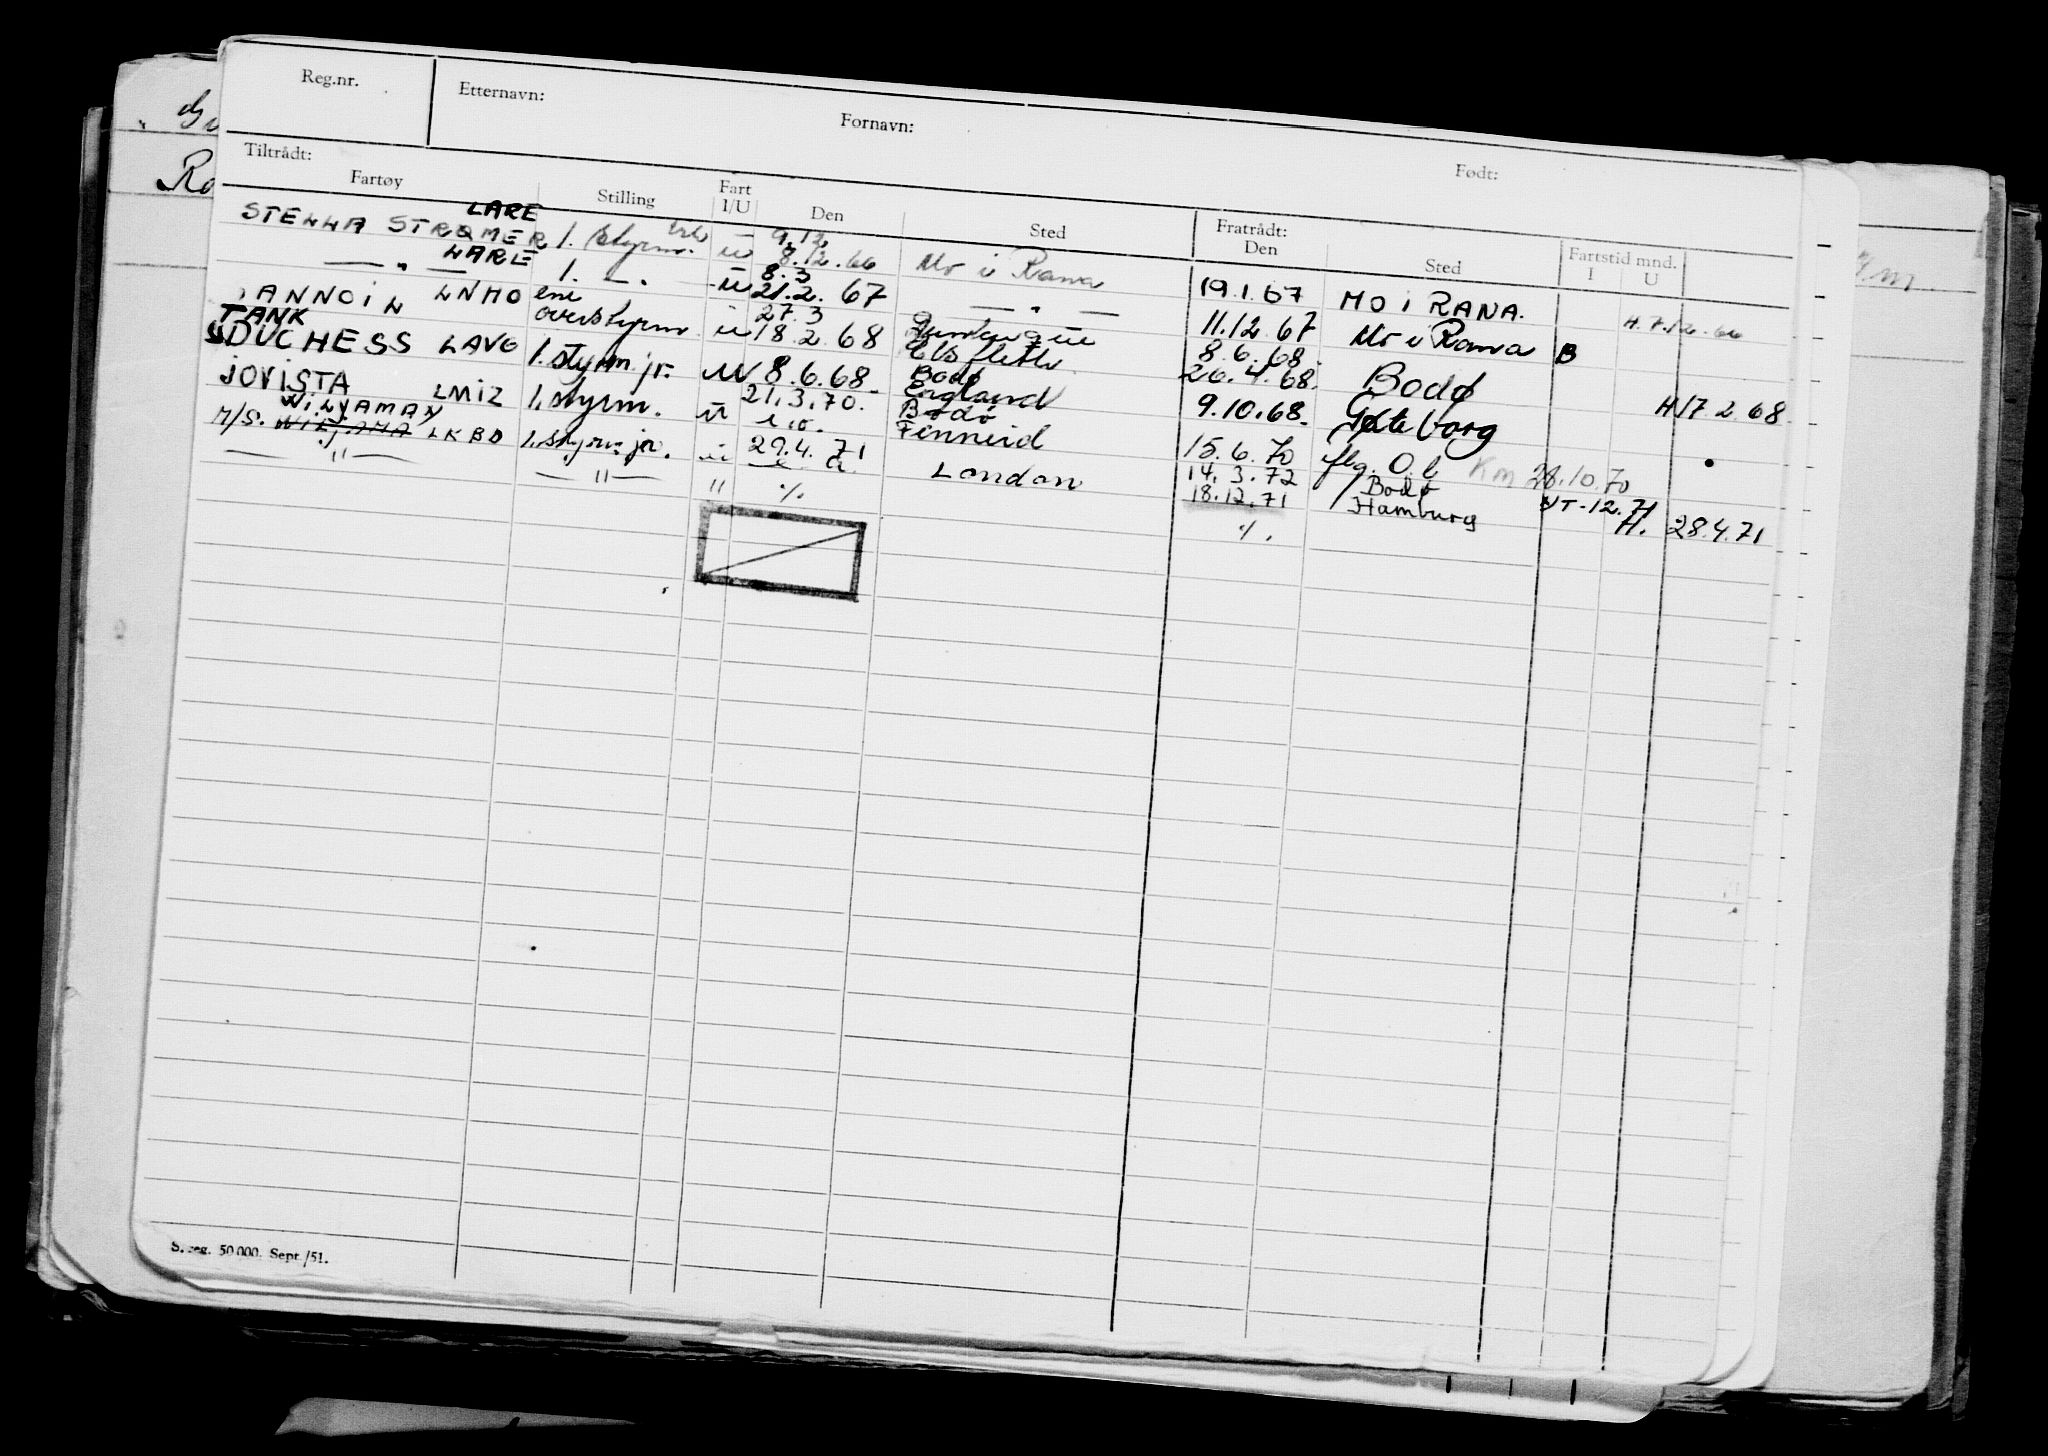 Reg.nr.
Etternavn:
Fornavn:
Født:
Tiltrådt:
Fartøy Stilling Fart I/U Den Sted Fratrådt: Den Sted Fartstid mnd. I U
LARE 9.12
STELLA STROMER 1. styrm. u 8.12.66 Mo i Rana 19.1.67 MO i RANA. H. 7.12.66
LARE 8.3
— " — 1. — " u 21.2. 67 — " — 11.12.67 Mo i Rana B
27.3
JANNOIL LNMO overstyrm u 18.2.68 Elsfleth 8.6.68. Bodø H 17 2.68
TANK
DUCHESS LAVG 1. styrm. jr. u 8.6.68 Bodø 26.4.68.
England
JOVISTA LMIZ 1. styrm. u 21.3.70. Bodø 9.10.68. Gøteborg
WILYAMAX
M/S. LKBD 1. styrm. jr. u 29.4.71 Finneid 15.6.70 flg. O.l Km 28.10.70
— " — — " — " ./. London 14.3.72 Bodø YT-12.71
18.12.71 Hamburg H. 28.4.71
./.
S. reg. 50.000. Sept./51.